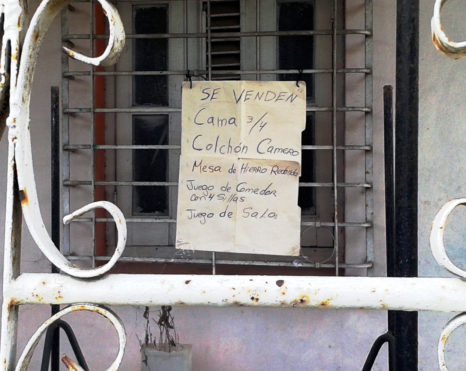 SE VENDEN
Cama 3/4
Colchón Camero
Mesa de HIERRO Redonda
Juego de Comedor
con 4 Sillas
Juego de Sala